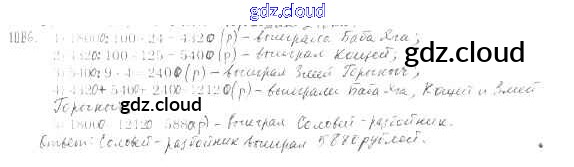 gdz.cloud
1186. 1) 18000:100·24=4320(р) - выиграла Баба Яга;
2) 4320:100·125=5400(р) - выиграл Кощей;
gdz.cloud
3) 5400:9·4=2400(р) - выиграл Змей Горыныч;
4) 4320+5400+2400=12120(р) - выиграли Баба Яга, Кощей и Змей
Горыныч
gdz.cloud
5) 18000-12120=5880(р) - выиграл Соловей-разбойник.
Ответ: Соловей-разбойник выиграл 5880 рублей.
gdz.cloud